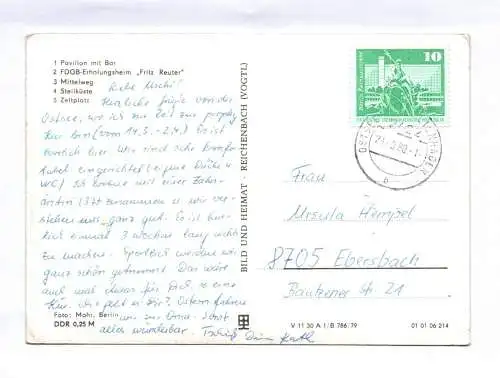 1 Pavillon mit Bar
2 FDGB-Erholungsheim „Fritz Reuter"
3 Mittelweg
4 Steilküste
5 Zeltplatz
Liebe Uschi!
Herzliche Grüße von der
Ostsee, wo ich zur Zeit zur
Kur bin (vom 14.3. - 2.4.) Es ist
herrlich hier. Wir sind sehr komfor-
tabel eingerichtet
WC) Ich wohne mit einer Zahn-
ärztin (37) zusammen u. wir ver-
stehen uns ganz gut. Es ist
einmal 3 Wochen lang nichts
zu machen. Sportlich werden wir
ganz schön genommen. Das wäre
auch mal etwas für Dich so eine
Kur. Wie geht es Dir? Ostern fahren
wir zur Oma. Sonst
alles wunderbar. Tschüß Deine
Foto: Mohr, Berlin
DDR 0,25 M
BILD UND HEIMAT · REICHENBACH (VOGTL)
V 11 30 A 1/B 786/79
01 01 06 214
10
Frau
Ursula Hempel
8705 Ebersbach
Bautzener St 21